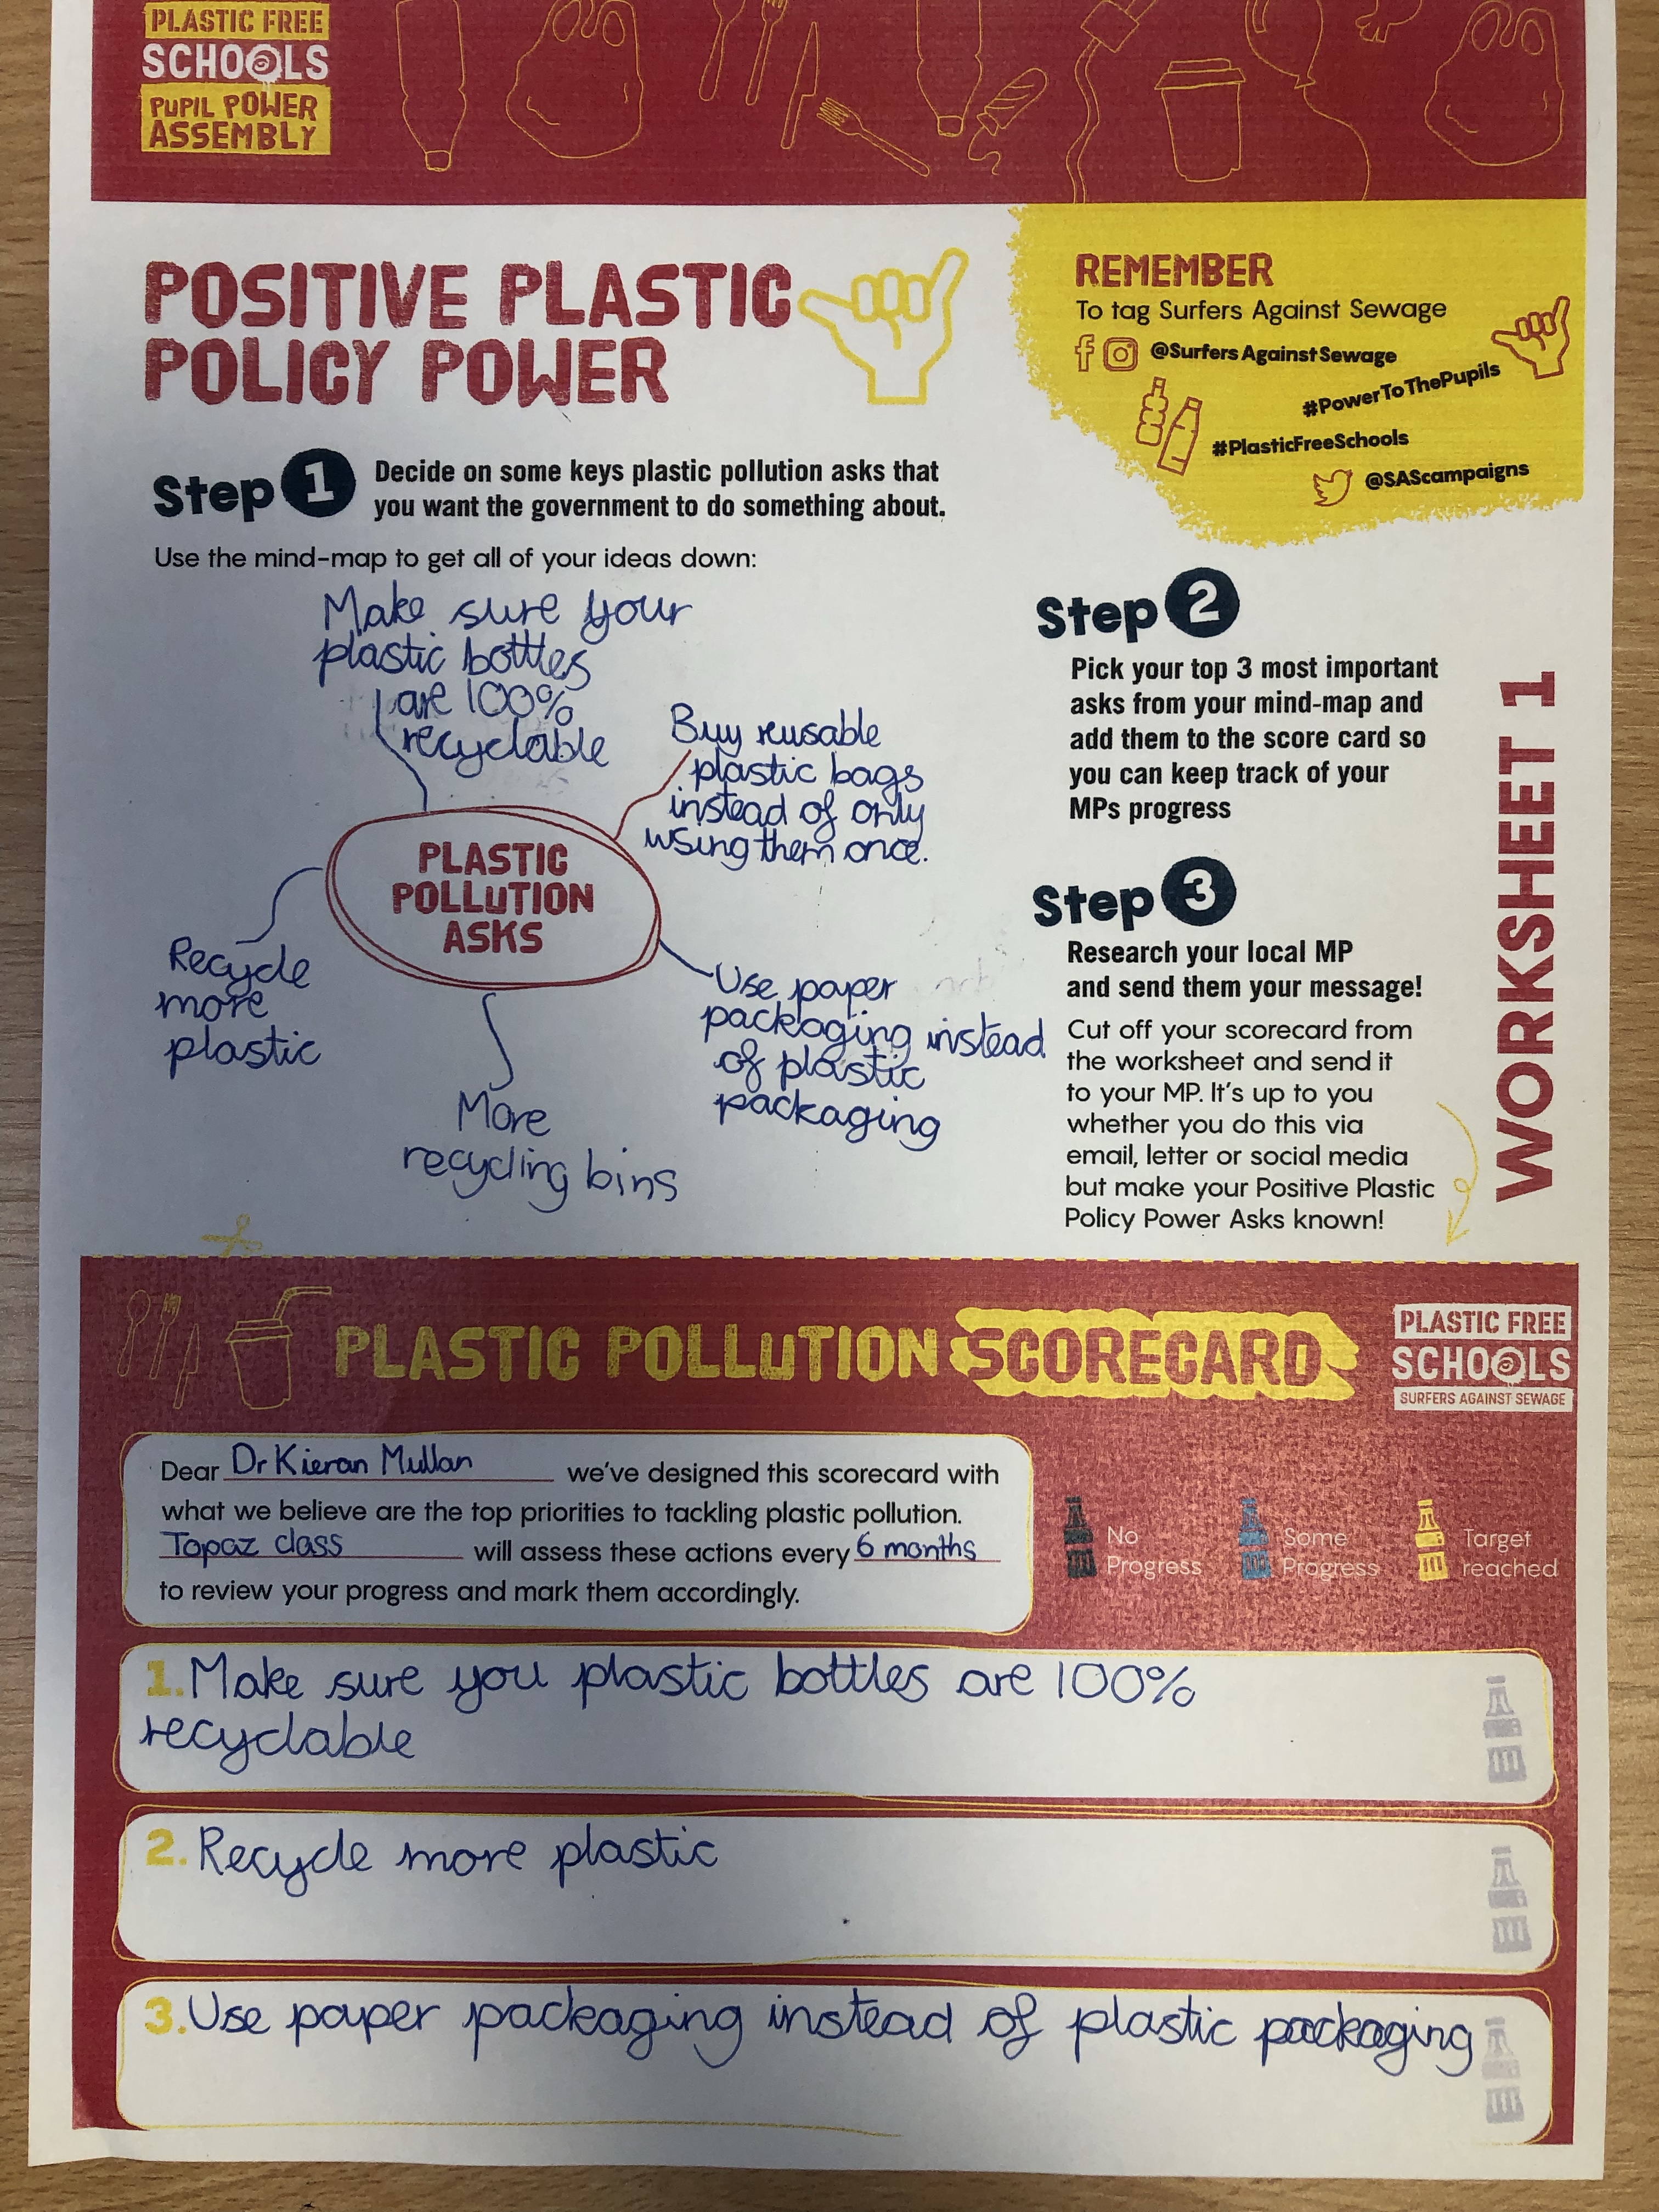 PLASTIC FREE
SCHOOLS
PUPIL POWER
ASSEMBLY
POSITIVE PLASTIC
POLICY POWER
REMEMBER
To tag Surfers Against Sewage
@SurfersAgainstSewage
#PowerToThePupils
#PlasticFreeSchools
@SAScampaigns
Step 1
Decide on some keys plastic pollution asks that
you want the government to do something about.
Use the mind-map to get all of your ideas down:
Make sure your
plastic bottles
are 100%
recyclable
Buy reusable
plastic bags
instead of only
using them once.
PLASTIC
POLLUTION
ASKS
Recycle
more
plastic
Use paper
packaging instead
of plastic
packaging
More
recycling bins
Step 2
Pick your top 3 most important
asks from your mind-map and
add them to the score card so
you can keep track of your
MPs progress
Step 3
Research your local MP
and send them your message!
Cut off your scorecard from
the worksheet and send it
to your MP. It's up to you
whether you do this via
email, letter or social media
but make your Positive Plastic
Policy Power Asks known!
WORKSHEET 1
PLASTIC POLLUTION SCORECARD
PLASTIC FREE
SCHOOLS
SURFERS AGAINST SEWAGE
Dear Dr Kieran Mullan we've designed this scorecard with
what we believe are the top priorities to tackling plastic pollution.
Topaz class will assess these actions every 6 months
to review your progress and mark them accordingly.
No
Progress
Some
Progress
Target
reached
1. Make sure you plastic bottles are 100%
recyclable
2. Recycle more plastic
3. Use paper packaging instead of plastic packaging